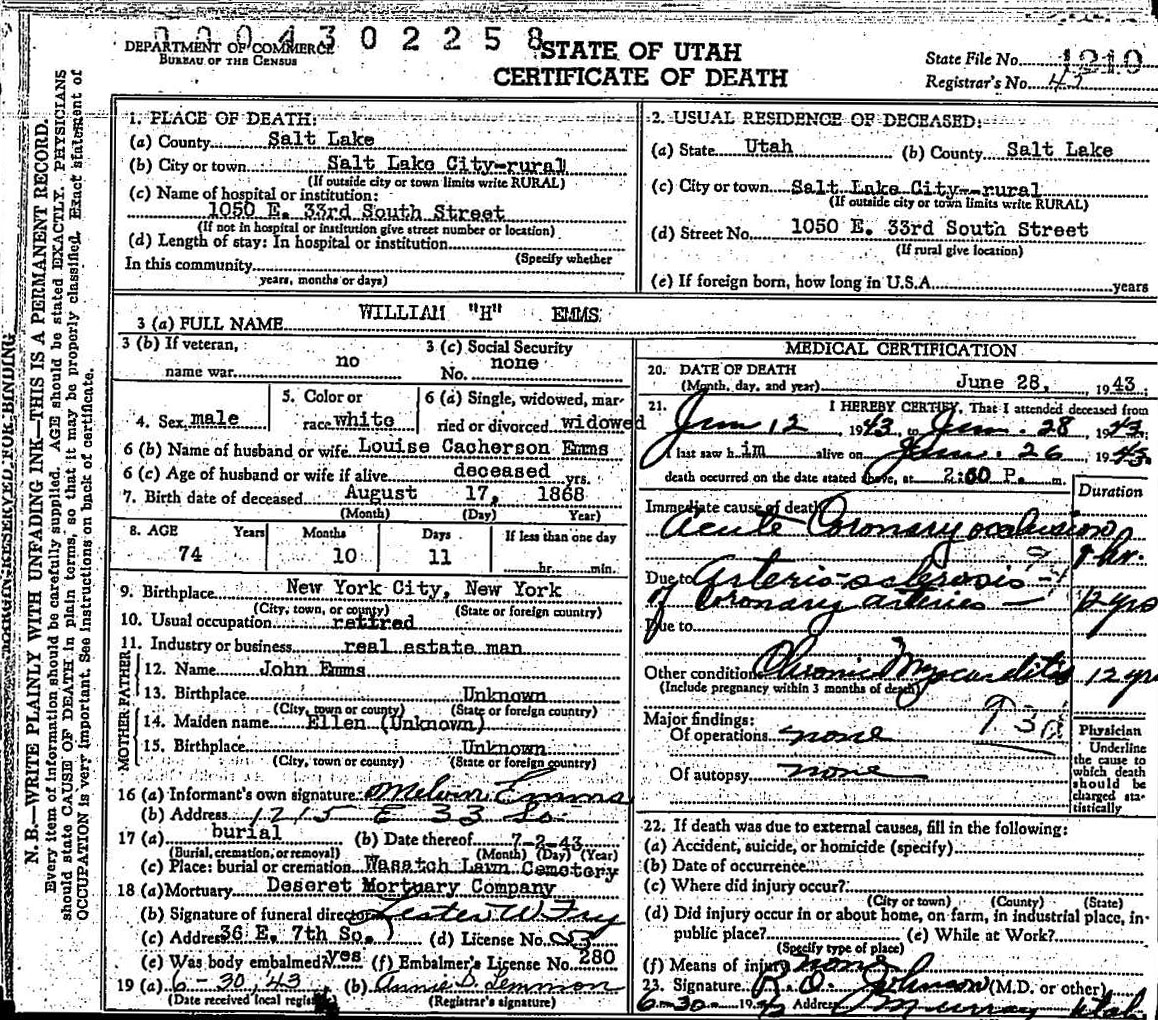 0004302258
DEPARTMENT OF COMMERCE
BUREAU OF THE CENSUS
STATE OF UTAH
CERTIFICATE OF DEATH
State File No. 1210
Registrar's No. 43
MARGIN RESERVED FOR BINDING
N. B.—WRITE PLAINLY WITH UNFADING INK—THIS IS A PERMANENT RECORD.
Every item of information should be carefully supplied. AGE should be stated EXACTLY. PHYSICIANS
should state CAUSE OF DEATH in plain terms, so that it may be properly classified. Exact statement of
OCCUPATION is very important. See instructions on back of certificate.
1. PLACE OF DEATH:
(a) County Salt Lake
(b) City or town Salt Lake City-rural
(If outside city or town limits write RURAL)
(c) Name of hospital or institution:
1050 E. 33rd South Street
(If not in hospital or institution give street number or location)
(d) Length of stay: In hospital or institution
(Specify whether
In this community
years, months or days)
2. USUAL RESIDENCE OF DECEASED:
(a) State Utah (b) County Salt Lake
(c) City or town Salt Lake City--rural
(If outside city or town limits write RURAL)
(d) Street No. 1050 E. 33rd South Street
(If rural give location)
(e) If foreign born, how long in U.S.A. years
3 (a) FULL NAME WILLIAM "H" EMMS
3 (b) If veteran, name war no
3 (c) Social Security No. none
4. Sex male
5. Color or race white
6 (a) Single, widowed, married or divorced widowed
6 (b) Name of husband or wife Louise Cacherson Emms
6 (c) Age of husband or wife if alive deceased yrs.
7. Birth date of deceased August 17, 1868
(Month) (Day) Year)
8. AGE Years Months Days If less than one day
74 10 11 hr. min.
9. Birthplace New York City, New York
(City, town, or county) (State or foreign country)
10. Usual occupation retired
11. Industry or business real estate man
FATHER
12. Name John Emms
13. Birthplace Unknown
(City, town or county) (State or foreign country)
MOTHER
14. Maiden name Ellen (Unknown)
15. Birthplace Unknown
(City, town or county) (State or foreign country)
16 (a) Informant's own signature Melvin Emms
(b) Address 1215 E 33 So.
17 (a) burial (b) Date thereof 7-2-43
(Burial, cremation, or removal) (Month) (Day) (Year)
(c) Place: burial or cremation Wasatch Lawn Cemetery
18 (a) Mortuary Deseret Mortuary Company
(b) Signature of funeral director Lester W Fry
(c) Address 36 E. 7th So. (d) License No.
(e) Was body embalmed? yes (f) Embalmer's License No. 280
19 (a) 6-30-43 (b) Annie D. Lemmon
(Date received local registrar) (Registrar's signature)
MEDICAL CERTIFICATION
20. DATE OF DEATH
(Month, day, and year) June 28, 1943.
21. I HEREBY CERTIFY, That I attended deceased from
Jun 12 1943, to Jun. 28 1943.
I last saw him alive on Jun. 26 1943.
death occurred on the date stated above, at 2:00 P. m.
Duration
Immediate cause of death
Acute Coronary occlusion
1 hr.
Due to Arterio-sclerosis
of Coronary arteries — 12 yrs
Due to
Other condition Chronic Myocarditis 12 yrs
(Include pregnancy within 3 months of death)
Major findings:
Of operations none
Of autopsy none
Physician
Underline
the cause to
which death
should be
charged sta-
tistically
22. If death was due to external causes, fill in the following:
(a) Accident, suicide, or homicide (specify)
(b) Date of occurrence
(c) Where did injury occur?
(City or town) (County) (State)
(d) Did injury occur in or about home, on farm, in industrial place, in-
public place? (e) While at Work?
(Specify type of place)
(f) Means of injury none
23. Signature R. O. Johnson (M.D. or other)
6-30-1943 Address Murray Utah